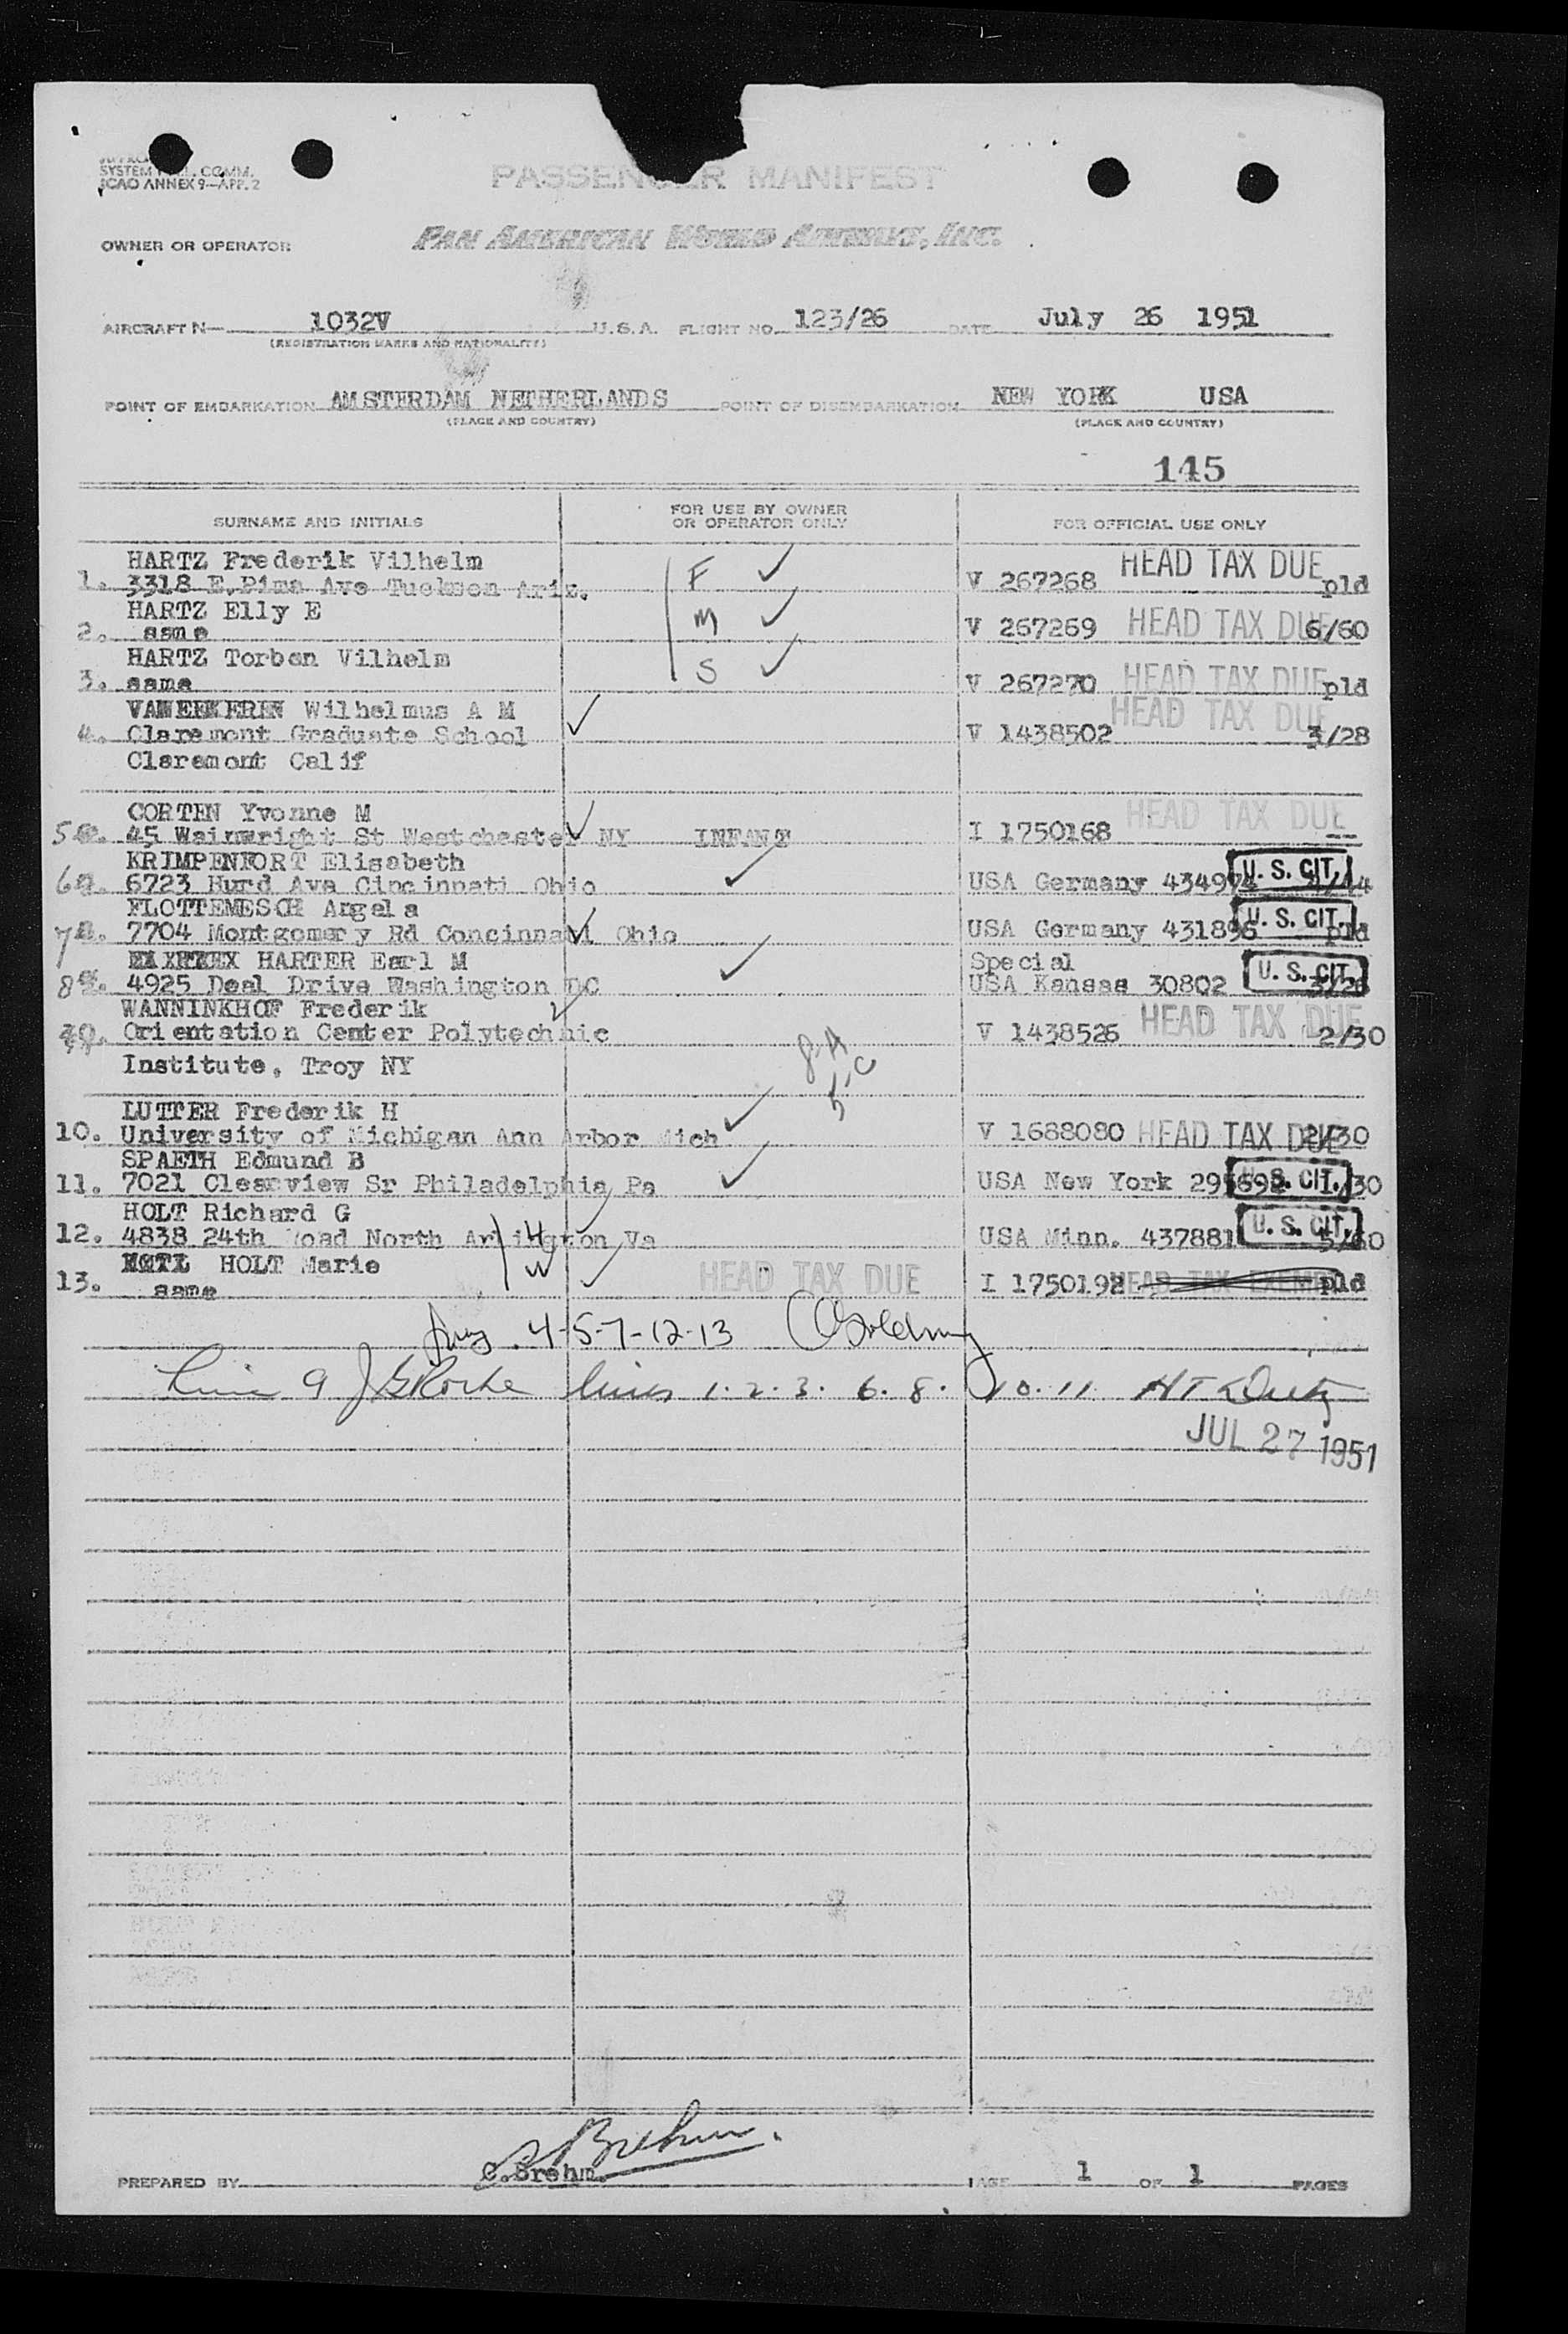 SYSTEM COMM.
ICAO ANNEX 9—APP. 2
PASSENGER MANIFEST
OWNER OR OPERATOR PAN AMERICAN WORLD AIRWAYS, INC.
AIRCRAFT N— 1032V U.S.A. FLIGHT NO. 123/26 DATE July 26 1951
(REGISTRATION MARKS AND NATIONALITY)
POINT OF EMBARKATION AMSTERDAM NETHERLANDS POINT OF DISEMBARKATION NEW YORK USA
(PLACE AND COUNTRY) (PLACE AND COUNTRY)
145
SURNAME AND INITIALS FOR USE BY OWNER OR OPERATOR ONLY FOR OFFICIAL USE ONLY
HARTZ Frederik Vilhelm F ✓ HEAD TAX DUE
1. 3318 E.Pima Ave Tuckson Ariz. V 267268 pld
HARTZ Elly E M ✓
2. same V 267269 HEAD TAX DUE 6/60
HARTZ Torben Vilhelm S ✓
3. same V 267270 HEAD TAX DUE pld
Wilhelmus A M ✓ HEAD TAX DUE
4. Claremont Graduate School V 1438502 3/28
Claremont Calif
CORTEN Yvonne M HEAD TAX DUE
5. 45 Wainwright St Westchester NY ✓ INFANT I 1750168 --
KRIMPENFORT Elisabeth ✓ U. S. CIT.
6. 6723 Hurd Ave Cincinnati Ohio USA Germany
FLOTTEMESCH Angela U. S. CIT.
7. 7704 Montgomery Rd Concinnati Ohio ✓ USA Germany pld
HARTER Earl M ✓ Special U. S. CIT.
8. 4925 Deal Drive Washington DC USA Kansas 30802
WANNINKHOF Frederik ✓
Orientation Center Polytechnic V 1438526 HEAD TAX DUE 2/30
Institute, Troy NY 8-A
5-C
LUTTER Frederik H ✓
10. University of Michigan Ann Arbor Mich V 1688080 HEAD TAX DUE 2/30
SPAETH Edmund B ✓
11. 7021 Clearview Sr Philadelphia Pa USA New York U. S. CIT. 1/30
HOLT Richard G ✓ U. S. CIT.
12. 4838 24th Road North Arlington Va H USA Minn. 437881
HOLT Marie W ✓ HEAD TAX DUE
13. same I 1750192 HEAD TAX EXEMPT pld
4-5-7-12-13
Line 9 lines 1. 2. 3. 6. 8. 10. 11
JUL 27 1951
C. Brehm.
PREPARED BY C.Brehm. PAGE 1 OF 1 PAGES